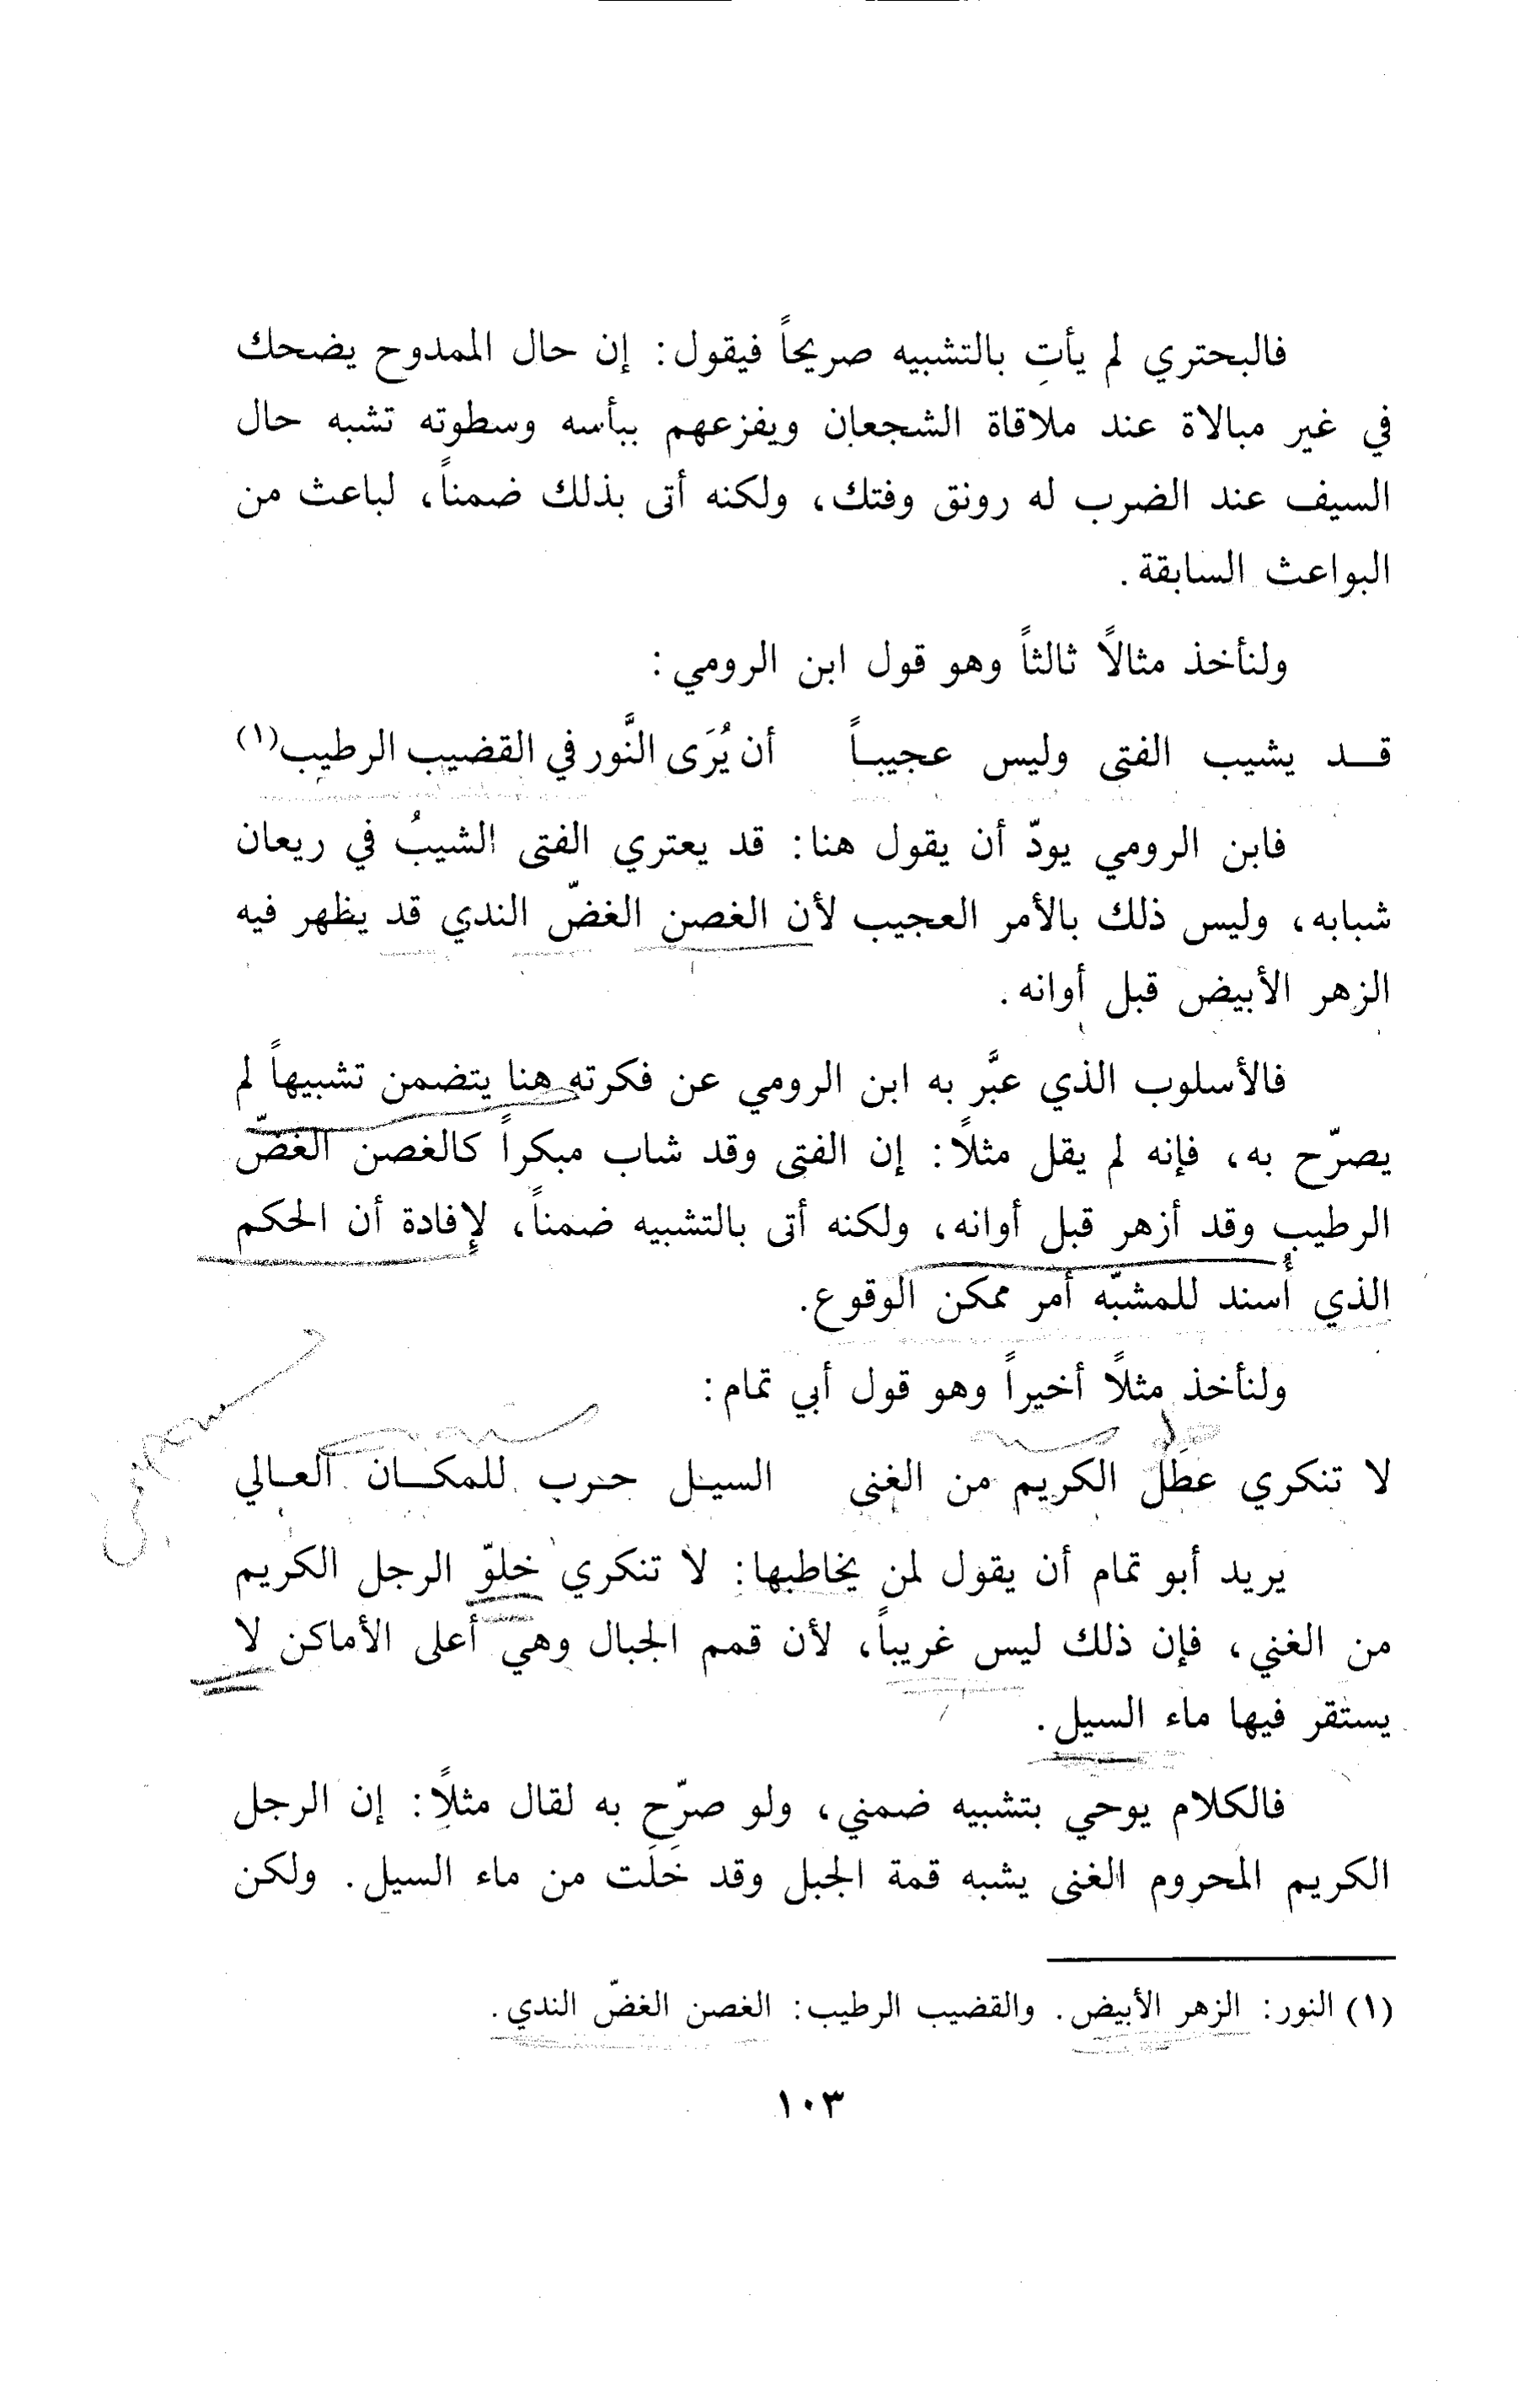 فالبحتري لم يأتِ بالتشبيه صريحاً فيقول: إن حال الممدوح يضحك
في غير مبالاة عند ملاقاة الشجعان ويفزعهم ببأسه وسطوته تشبه حال
السيف عند الضرب له رونق وفتك، ولكنه أتى بذلك ضمناً، لباعث من
البواعث السابقة.
ولنأخذ مثالًا ثالثاً وهو قول ابن الرومي:
قــد يشيب الفتى وليس عجيبـاً أن يُرَى النَّور في القضيب الرطيب(١)
فابن الرومي يودّ أن يقول هنا: قد يعتري الفتى الشيبُ في ريعان
شبابه، وليس ذلك بالأمر العجيب لأن الغصن الغضّ الندي قد يظهر فيه
الزهر الأبيض قبل أوانه.
فالأسلوب الذي عبَّر به ابن الرومي عن فكرته هنا يتضمن تشبيهاً لم
يصرّح به، فإنه لم يقل مثلًا: إن الفتى وقد شاب مبكراً كالغصن الغضّ
الرطيب وقد أزهر قبل أوانه، ولكنه أتى بالتشبيه ضمناً، لإفادة أن الحكم
الذي أُسند للمشبّه أمر ممكن الوقوع.
ولنأخذ مثلًا أخيراً وهو قول أبي تمام:
لا تنكري عطَلَ الكريم من الغنى السيـل حـرب للمكــان العـالي
يريد أبو تمام أن يقول لمن يخاطبها: لا تنكري خلوّ الرجل الكريم
من الغني، فإن ذلك ليس غريباً، لأن قمم الجبال وهي أعلى الأماكن لا
يستقر فيها ماء السيل.
فالكلام يوحي بتشبيه ضمني، ولو صرّح به لقال مثلًا: إن الرجل
الكريم المحروم الغنى يشبه قمة الجبل وقد خَلَت من ماء السيل. ولكن
(١) النور: الزهر الأبيض. والقضيب الرطيب: الغصن الغضّ الندي.
١٠٣